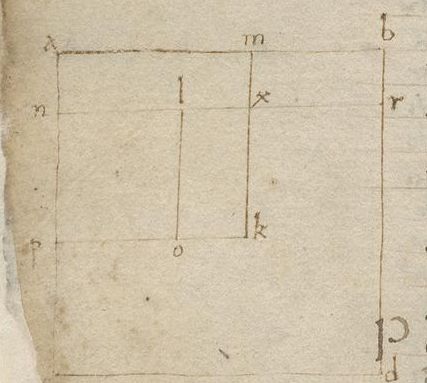 a m b
n l x r
p o k
d